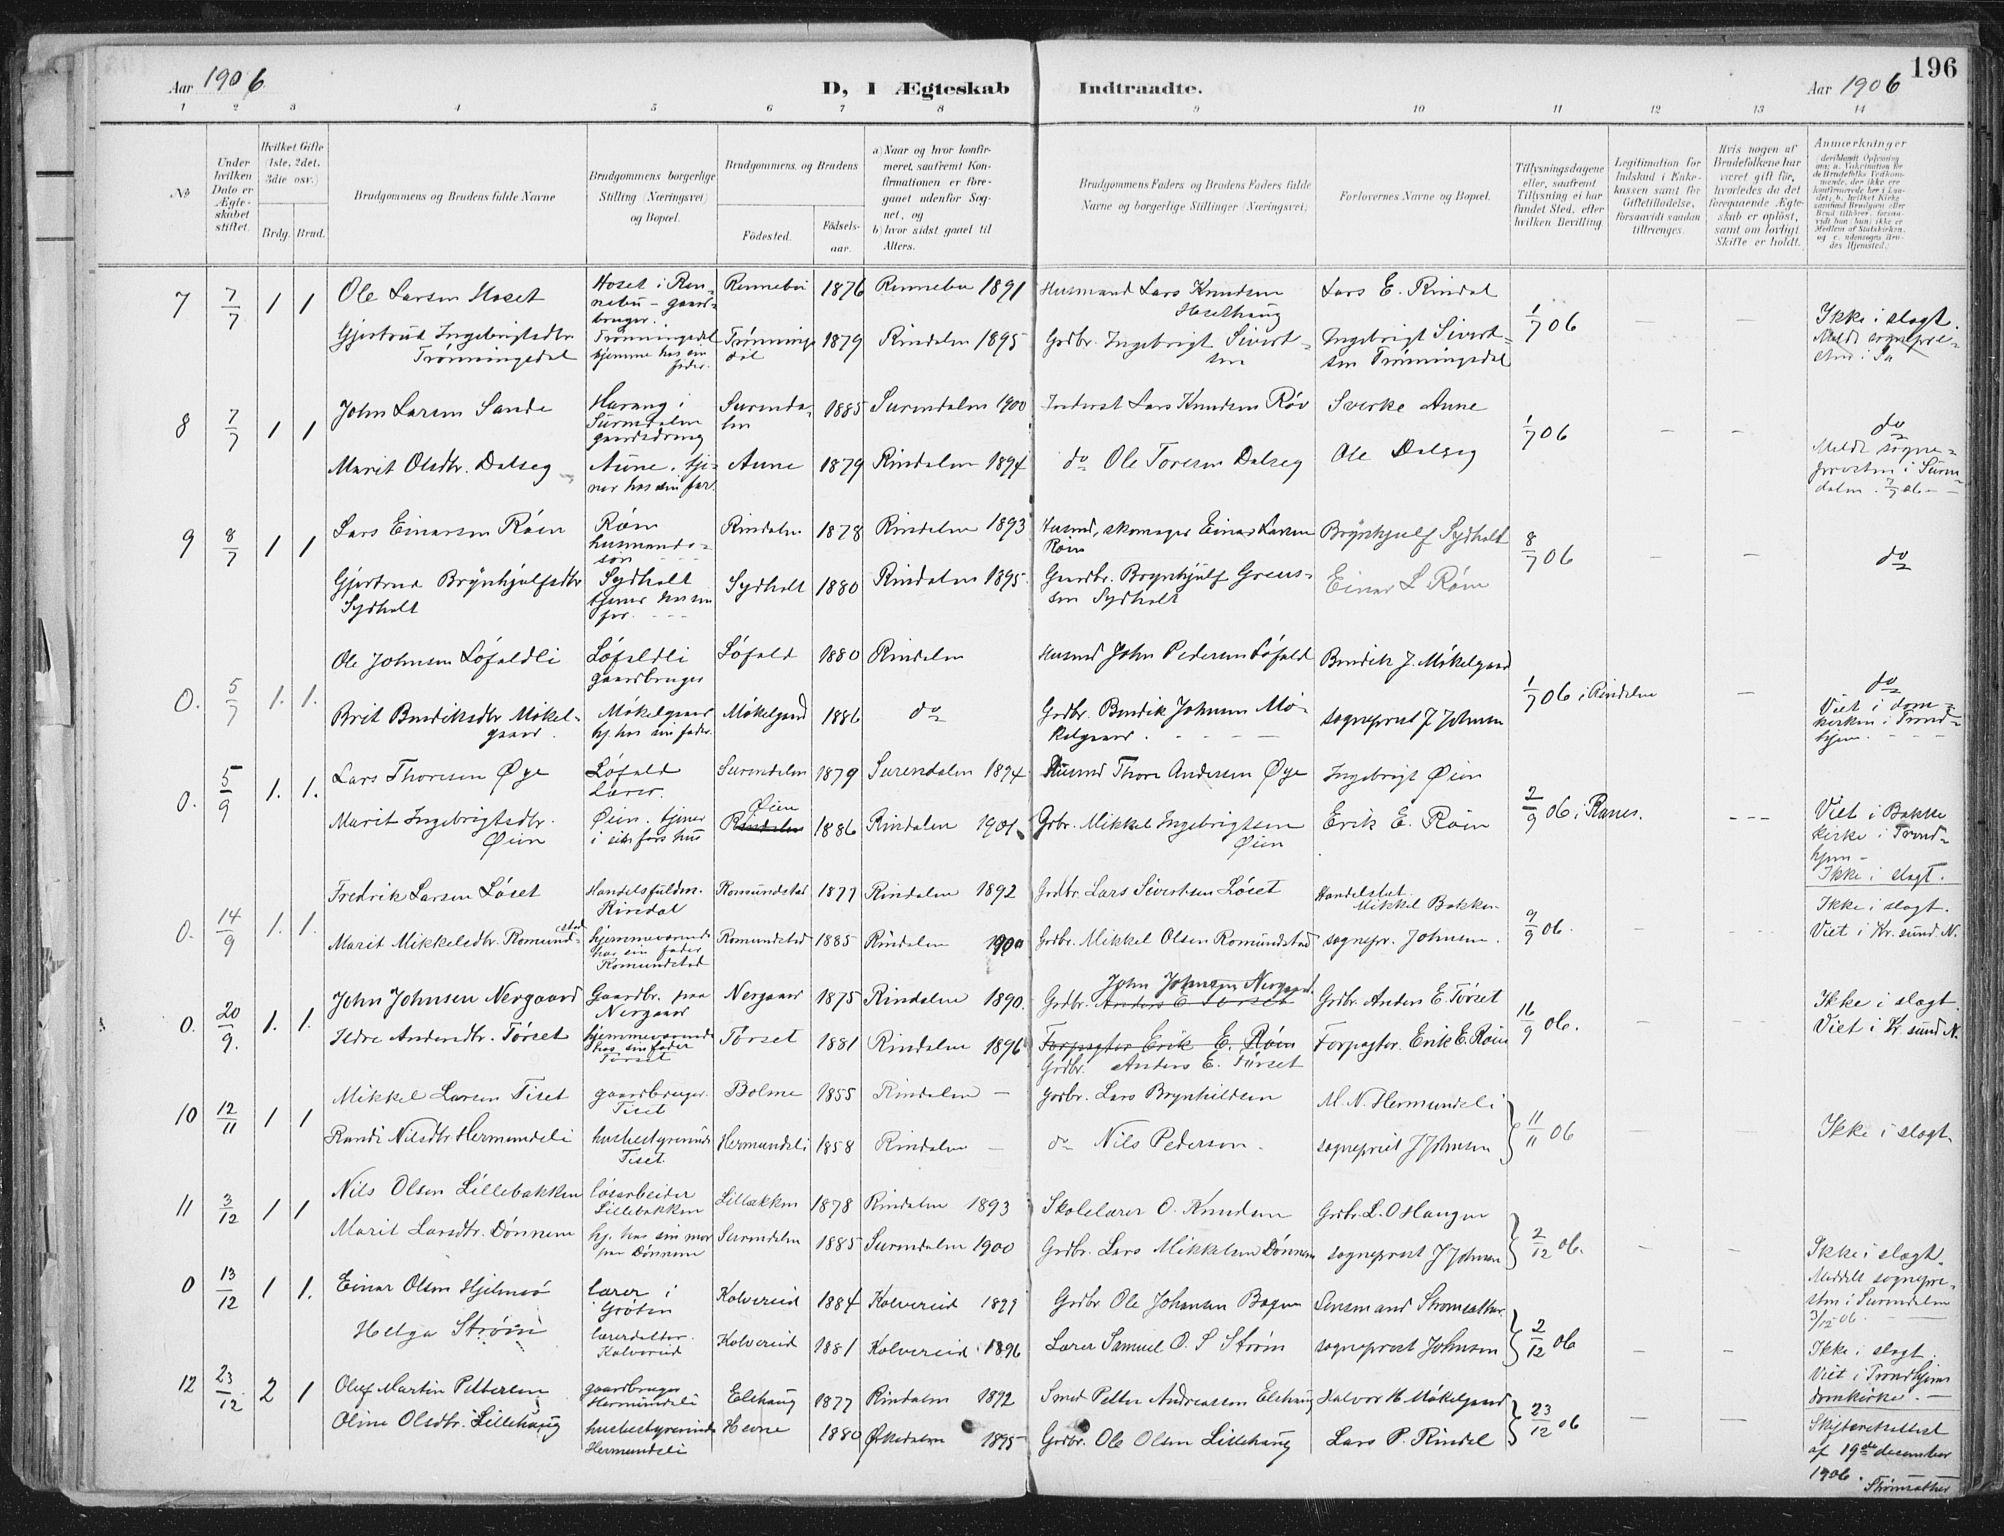 Aar 1906
D, I Ægteskab
Indtraadte.
Aar 1906
196
1 2 3 4 5 6 7 8 9 10 11 12 13 14
No
Under hvilken Dato er Ægteskabet stiftet.
Hvilket Gifte (1ste, 2det, 3die osv.)
Brdg. Brud.
Brudgommens og Brudens fulde Navne
Brudgommens borgerlige Stilling (Næringsvei) og Bopæl.
Brudgommens og Brudens
Fødested.
Fødselsaar.
a) Naar og hvor konfirmeret, saafremt Konfirmationen er foregaaet udenfor Sognet, og
b) hvor sidst gaaet til Alters.
Brudgommens Faders og Brudens Faders fulde Navne og borgerlige Stillinger (Næringsvei)
Forlovernes Navne og Bopæl.
Tillysningsdagene eller, saafremt Tillysning ei har fundet Sted, efter hvilken Bevilling.
Legitimation for Indskud i Enkekassen samt for Giftetilladelse, forsaavidt saadan tiltrænges.
Hvis nogen af Brudefolkene har været gift før, hvorledes da det foregaaende Ægteskab er opløst, samt om lovligt Skifte er holdt.
Anmerkninger
7 7/7 1 1 Ole Larsen Hoset Hoset i Rennebu - gaardbruger. Rennebu 1876 Rennebu 1891 Husmand Lars Knudsen Hosethaug Lars E. Rindal 1/7 06 Ikke i slegt.
Gjertrud Ingebrigtsdtr. Trønningsdal Trønningsdal hjemme hos sin fader. Trønningsdal 1879 Rindalen 1895 Grdbr. Ingebrigt Sivertsen Ingebrigt Sivertsen Trønningsdal
8 7/7 1 1 John Larsen Sande Harang i Surendalen gaardsdreng Surendalen 1885 Surendalen 1900 Inderst Lars Knudsen Røv Sverke Aune 1/7 06 do
Marit Olsdtr. Dalseg Aune, tjener hos sin far. Aune 1879 Rindalen 1894 do Ole Toresen Dalseg Ole Dalseg Meldt sognepresten i Surendalen
9 8/7 1 1 Lars Einarsen Røen Røen husmandssøn Rindalen 1878 Rindalen 1893 Husmd, skomager Einar Larsen Røen Brynhjulf Sydhalt 8/7 06 do
Gjertrud Brynhjulfsdtr Sydhalt Sydhalt hjemme hos sin far. Sydhalt 1880 Rindalen 1895. Gaardbr. Brynhjulf Sydhalt Einar L Røen
0. 5/7 1. 1. Ole Johnsen Løfaldli Løfaldli gaardbruger Løfald 1880 Rindalen Husmd John Pedersen Løfald Bendik J. Møkelgaard 1/7 06 i Rindalen do
Brit Bendiksdtr Møkelgaard. Møkelgaard hj. hos sin fader. Møkelgaard 1886 do Grdbr. Bendik Johnsen Møkelgaard. sogneprest J Johnsen Viet i domkirken i Trondhjem.
0. 5/9 1. 1. Lars Thoresen Øye Løfald Lærer. Surendalen 1879 Surendalen 1894 Husmd Thore Andersen Øye Ingebrigt Øien 2/9 06 i Ranes. Viet i Bakke kirke i Trondhjem. Ikke i slegt.
Marit Ingebrigtsdtr. Øien Øien. hjemme i sin fars hus Øien Rindalen 1886 Rindalen 1901 Grbr. Mikkel Ingebrigtsen Øien Erik E. Røen
0. 14/9 1. 1. Fredrik Larsen Løset Handelsfuldm. Rindal Romundstad 1877 Rindalen 1892 Grdbr. Lars Sivertsen Løset Handelsbet. Mikkel Bakken 9/9 06. Ikke i slegt.
Marit Mikkelsdtr. Romundstad hjemmeværende hos sin fader Romundstad Romundstad 1885 Rindalen 1900 Grdbr. Mikkel Olsen Romundstad sognepr. Johnsen. Viet i Kr.sund N.
0. 20/9. 1. 1. John Johnsen Nergaard Gaardbr. paa Nergaard Nergaard 1875 Rindalen 1890. Grdbr. John Johnsen Nergaard Anders E Tørset Grdbr. Anders E. Tørset 16/9 06. Ikke i slegt
Ildre Andersdtr. Tørset hjemmeværende hos sin fader Tørset Tørset 1881 Rindalen 1896 Forpagter Erik E. Røen Grdbr. Anders E. Tørset Forpagter. Erik E. Røen Viet i Kr.sund N.
10 12/11 1 1 Mikkel Larsen Tiset gaardbruger. Tiset Bolme 1855 Rindalen - Grdbr. Lars Brynhildsen M. N. Hermundsli 11/11 06 Ikke i slegt.
Randi Nilsdtr Hermundsli husbestyrerinde Tiset. Hermundsli 1858 Rindalen - do Nils Pedersen. sogneprest J Johnsen
11 3/12 1 1 Nils Olsen Lillebakken løsarbeider Lillebakken Lillebakken 1878 Rindalen 1893 Skolelærer O. Knudsen Grdbr. L. O Haugen 2/12 06.
Marit Larsdtr. Dønnem hj. hos sin mor paa Dønnem Surendalen 1885 Surendalen 1900 Grdbr. Lars Mikkelsen Dønnem sogneprest J Johnsen Ikke i slegt. Meddelt sognepresten i Surendalen 3/12 06.
0 13/12 1 1. Einar Olsen Hjelmsø lærer i Grøten Kolvereid 1884 Kolvereid 1899 Grdbr Ole Johansen Lensmand Strømsæther. 2/12 06
Helga Strøm lærerdatter. Kolvereid Kolvereid 1881 Kolvereid 1896 Lærer Samuel O. S Strøm sogneprest Johnsen Ikke i slegt. Viet i Trondhjems domkirke.
12 23/12 2 1 Oluf Martin Pettersen gaardbruger Hermundsli Elshaug 1877 Rindalen 1892 Smed Petter Andreassen Elshaug Halvor H. Møkelgaard 23/12 06
Oline Olsdtr. Lillehaug husbestyrerinde Hermundsli Hevne 1880 Ørkedalen 1895 Grdbr. Ole Olsen Lillehaug Lars P. Rindal Skifteretsattest af 19de desember 1906. Strømsæther